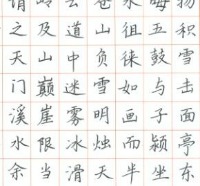 谓之天门溪水余
岭及山巅崖限当
云道中迷雾冰滑
苍山负雪明烛天
水徂徕如画而半
晦五鼓与子颍坐
扬积雪击面亭东